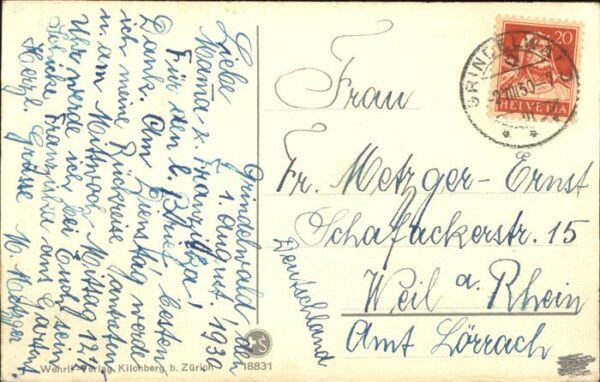 Grindelwald, den
1. August 1930
Liebe
Mama & Franzliska!
Für den l. Brief besten
Dank. Am Dienstag werde
ich meine Rückreise antreten
u. am Mittwoch Mittag 12 15
Uhr werde ich bei Euch sein.
Schicke Franziska ans Gärtli
Herzl. Grüsse M. Metzger
Frau
Fr. Metzger-Ernst
Schafackerstr. 15
Weil a. Rhein
Amt Lörrach
Deutschland
20
HELVETIA
GRINDELWALD
Wehrli-Verlag Kilchberg b. Zürich
18831